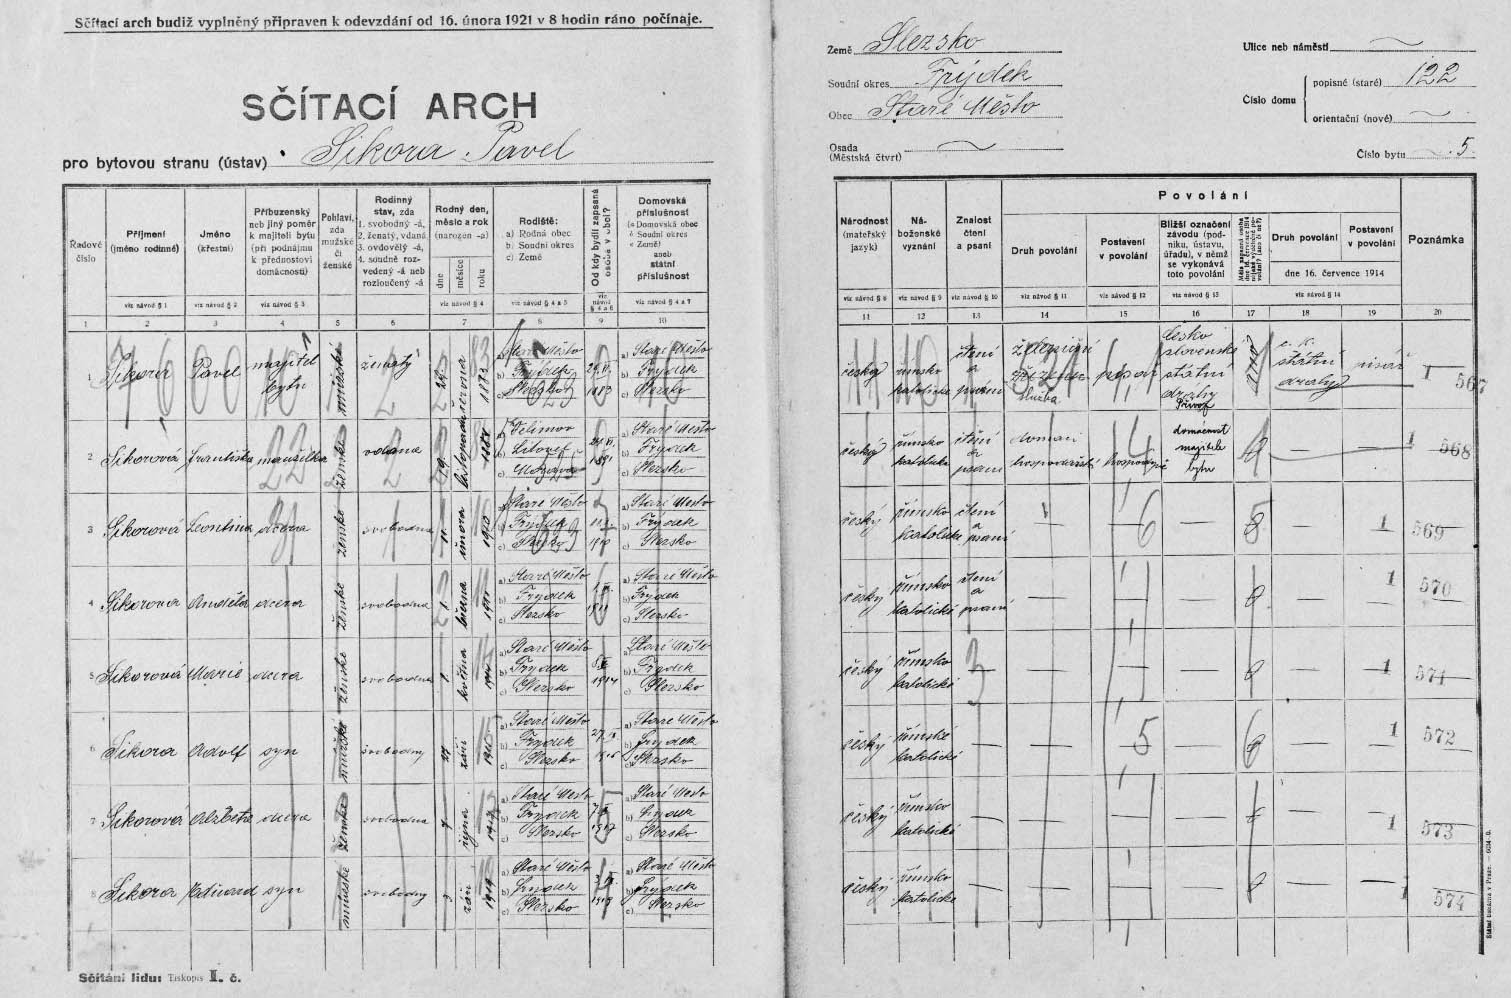 Sčítací arch budiž vyplněný připraven k odevzdání od 16. února 1921 v 8 hodin ráno počínaje.
SČÍTACÍ ARCH
pro bytovou stranu (ústav) Sikora Pavel
Řadové číslo
Příjmení (jméno rodinné)
Jméno (křestní)
Příbuzenský neb jiný poměr k majiteli bytu (při podnájmu k přednostovi domácnosti)
Pohlaví, zda mužské či ženské
Rodinný stav, zda 1. svobodný -á, 2. ženatý, vdaná 3. ovdovělý -á, 4. soudně rozvedený -á neb rozloučený -á
Rodný den, měsíc a rok (narozen -a)
dne měsíce roku
Rodiště: a) Rodná obec b) Soudní okres c) Země
Od kdy bydlí zapsaná osoba v obci?
Domovská příslušnost (a Domovská obec b Soudní okres c Země) aneb státní příslušnost
viz návod § 1 viz návod § 2 viz návod § 3 viz návod § 4 viz návod § 4 a 5 viz návod § 4 a 6 viz návod § 4 a 7
1 2 3 4 5 6 7 8 9 10
1 Sikora Pavel majitel bytu mužské ženatý 29. června 1883 a) Staré Město b) Frýdek c) Slezsko 1883 a) Staré Město b) Frýdek c) Slezsko
2 Sikorová Františka manželka ženské vdaná 29. listopadu a) b) c) Morava a) Staré Město b) Frýdek c) Slezsko
3 Sikorová Leontina dcera ženské svobodna února 1910 a) Staré Město b) Frýdek c) Slezsko 1910 a) Staré Město b) Frýdek c) Slezsko
4 Sikorova Anděla dcera ženské svobodna března 1911 a) Staré Město b) Frýdek c) Slezsko 1911 a) Staré Město b) Frýdek c) Slezsko
5 Sikorová Marie dcera ženské svobodna května 1914 a) Staré Město b) Frýdek c) Slezsko 1914 a) Staré Město b) Frýdek c) Slezsko
6 Sikora Adolf syn mužské svobodny 27 září a) Staré Město b) Frýdek c) Slezsko a) Staré Město b) Frýdek c) Slezsko
7 Sikorová Alžběta dcera ženské svobodna 7 října 1917 a) Staré Město b) Frýdek c) Slezsko 1917 a) Staré Město b) Frýdek c) Slezsko
8 Sikora Eduard syn mužské svobodny 3 září 1919 a) Staré Město b) Frýdek c) Slezsko 1919 a) Staré Město b) Frýdek c) Slezsko
Sčítání lidu: Tiskopis I. č.
Země Slezsko
Soudní okres Frýdek
Obec Staré Město
Osada (Městská čtvrť)
Ulice neb náměstí
Číslo domu
popisné (staré) 122
orientační (nové)
Číslo bytu 5.
Národnost (mateřský jazyk)
Náboženské vyznání
Znalost čtení a psaní
Povolání
Druh povolání
Postavení v povolání
Bližší označení závodu (podniku, ústavu, úřadu), v němž se vykonává toto povolání
Druh povolání
Postavení v povolání
dne 16. července 1914
Poznámka
viz návod § 8 viz návod § 9 viz návod § 10 viz návod § 11 viz návod § 12 viz návod § 13 viz návod § 14
11 12 13 14 15 16 17 18 19 20
česky římsko katolické čtení a psaní železniční služba pisar česko slovenské státní dráhy Přívoz ano c. k. státní drahy pisař 1 567
český římsko katolické čtení a psaní domácnost majitele bytu 1 568
český římsko katolické čtení a psaní 1 569
český římsko katolické čtení a psaní 1 570
český římsko katolické 1 571
český římsko katolické 1 572
český římsko katolické 1 573
český římsko katolické 1 574